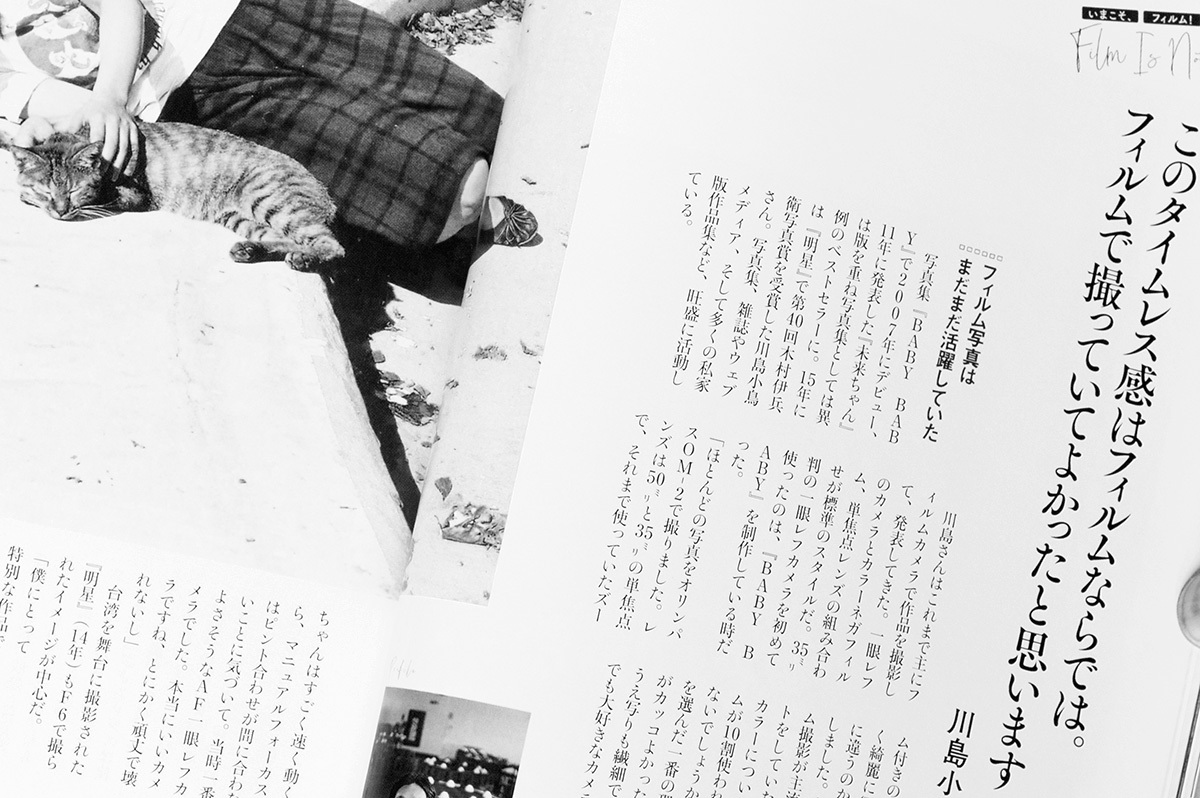 いまこそ、フィルム!
Film Is No
このタイムレス感はフィルムならでは。
フィルムで撮っていてよかったと思います
川島小
フィルム写真は
まだまだ活躍していた
写真集『BABY BAB
Y』で2007年にデビュー、
11年に発表した『未来ちゃん』
は版を重ね写真集としては異
例のベストセラーに。15年に
は『明星』で第40回木村伊兵
衛写真賞を受賞した川島小鳥
さん。写真集、雑誌やウェブ
メディア、そして多くの私家
版作品集など、旺盛に活動し
ている。
川島さんはこれまで主にフ
ィルムカメラで作品を撮影し
て、発表してきた。一眼レフ
のカメラとカラーネガフィル
ム、単焦点レンズの組み合わ
せが標準のスタイルだ。35㍉
判の一眼レフカメラを初めて
使ったのは、『BABY B
ABY』を制作している時だ
った。
「ほとんどの写真をオリンパ
スOM-2で撮りました。レ
ンズは50㍉と35㍉の単焦点
で、それまで使っていたズー
ム付きの
く綺麗に
に違うのか
しました。
ム撮影が主流
トをしていた
カラーについ
ムが10割使われ
ないでしょうか
を選んだ一番の
がカッコよかった
うえ写りも繊細で
でも大好きなカメラ
ちゃんはすごく速く動く
ら、マニュアルフォーカス
はピント合わせが間に合わな
いことに気づいて。当時一番
よさそうなAF一眼レフカ
メラでした。本当にいいカメ
ラですね、とにかく頑丈で壊
れないし」
台湾を舞台に撮影された
『明星』(14年)もF6で撮ら
れたイメージが中心だ。
「僕にとって
特別な作品で